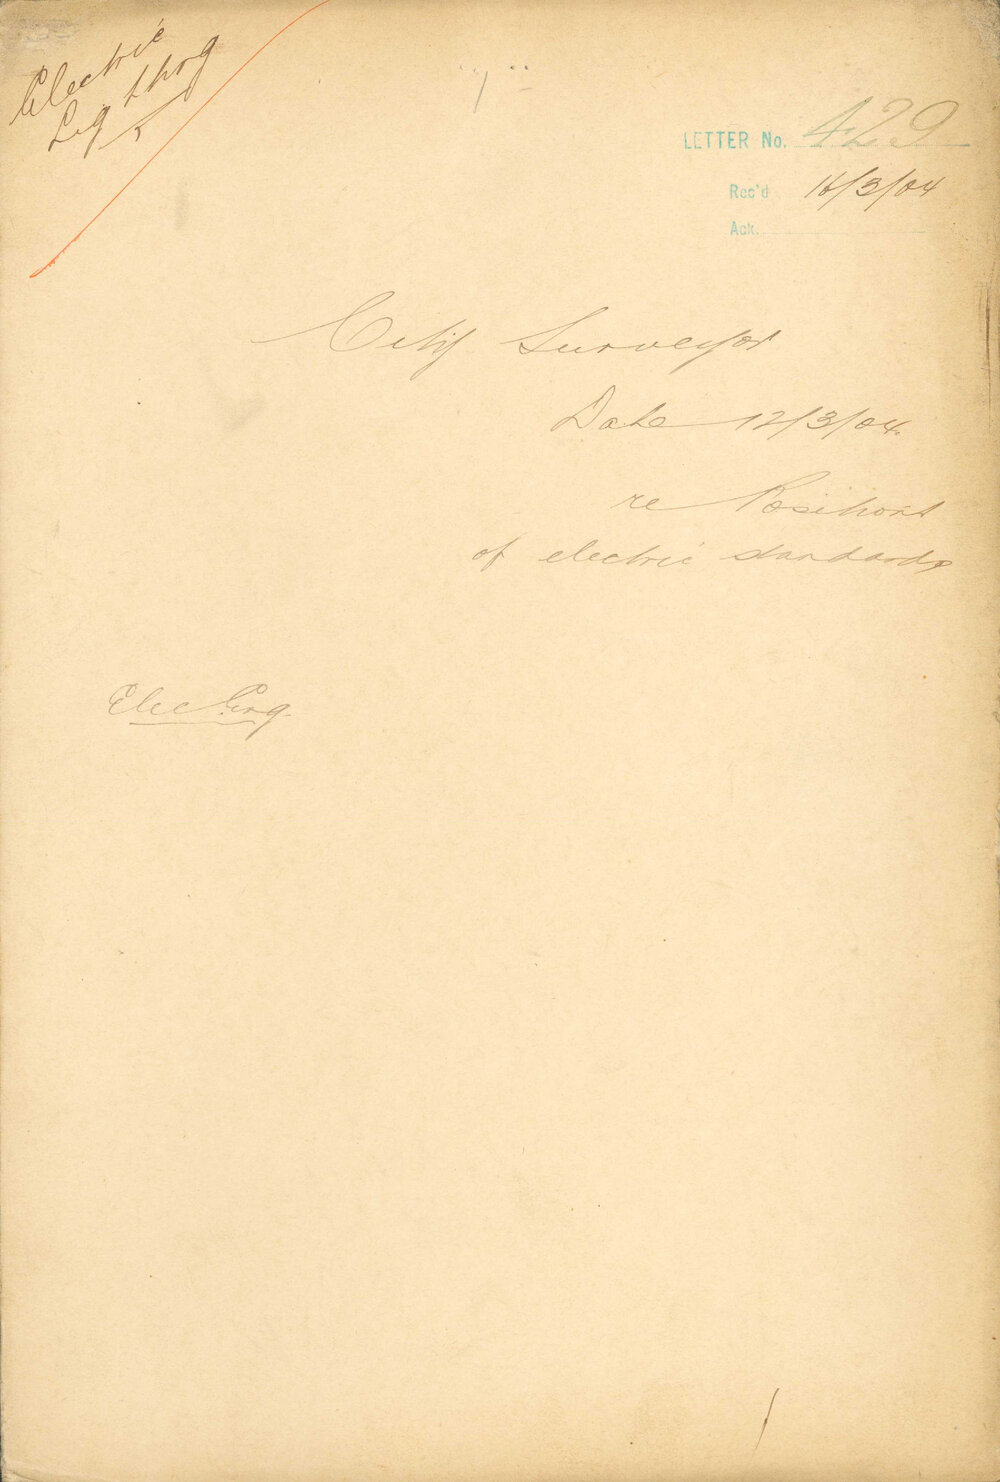 Electric
Lighting
LETTER No. 429
Rec'd 16/3/04
Ack.
City Surveyor
Date 12/3/04.
re Positions
of electric standards
Elec. Eng.